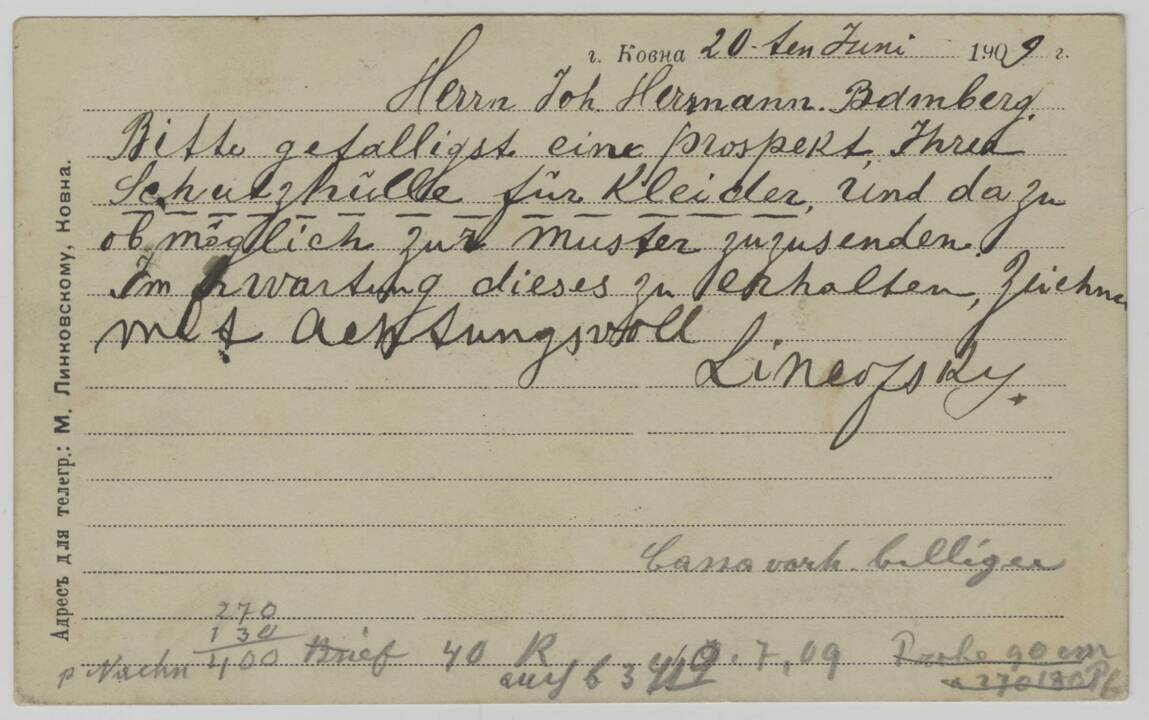 г. Ковна 20-ten Juni 1909 г.
Herrn Joh. Herrmann. Bamberg.
Bitte gefalligst eine prospekt Ihres
Schutzhülle für Kleider, und dazu
ob möglich zur muster zuzusenden.
Im Erwartung dieses zu erhalten, Zeichne
mit achtungsvoll
Lincofsky.
Адресъ для телегр.: М. Линковскому, Ковна.
Cassa vorh. billiger
270
130
400
p Nachn Brief 40 R 9.7.09 Probe 90 cm
auf 6 3
270 180 Pf